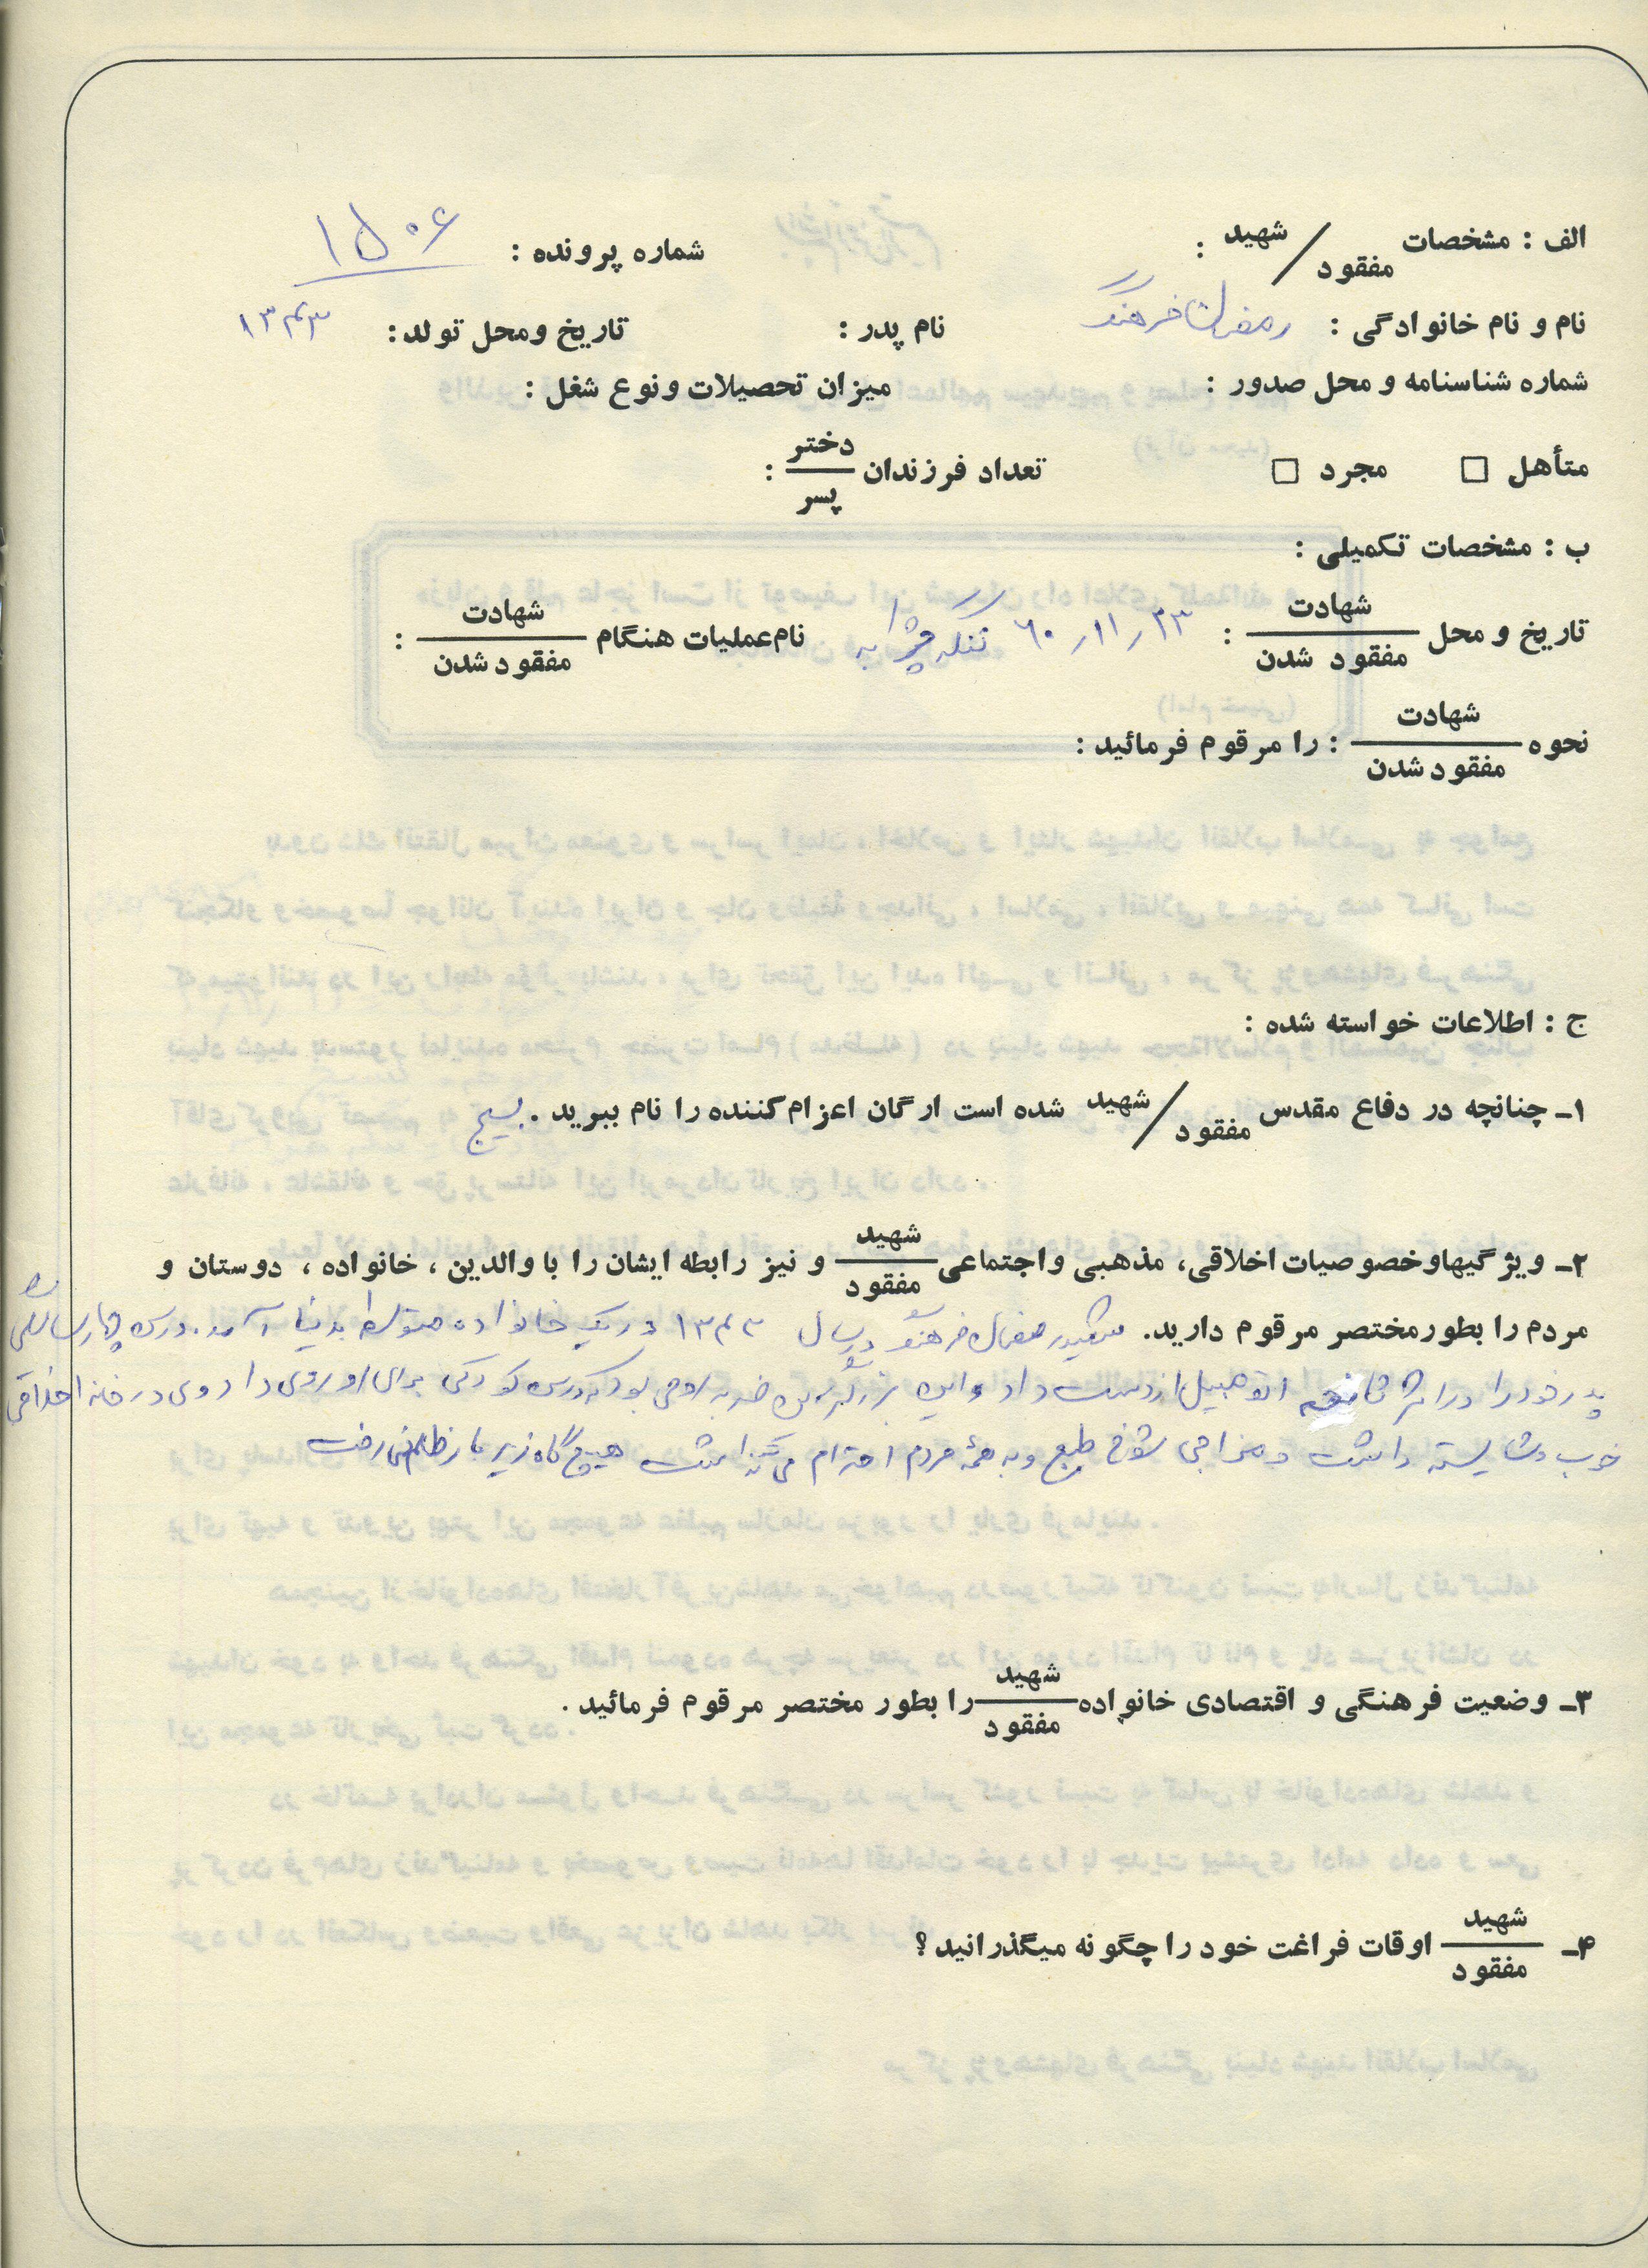 الف : مشخصات شهید / مفقود :
شماره پرونده : ۱۵۰۶
نام و نام خانوادگی : رمضان فرهنگ
نام پدر :
تاریخ ومحل تولد : ۱۳۴۳
شماره شناسنامه و محل صدور :
میزان تحصیلات ونوع شغل :
متأهل □ مجرد □ تعداد فرزندان دختر / پسر :
ب : مشخصات تکمیلی :
تاریخ و محل شهادت / مفقود شدن : ۶۰/۱۱/۲۳ تنگه چزابه نام عملیات هنگام شهادت / مفقود شدن :
نحوه شهادت / مفقود شدن : را مرقوم فرمائید :
ج : اطلاعات خواسته شده :
۱ـ چنانچه در دفاع مقدس شهید / مفقود شده است ارگان اعزام کننده را نام ببرید . بسیج
۲ـ ویژگیهاوخصوصیات اخلاقی، مذهبی واجتماعی شهید / مفقود و نیز رابطه ایشان را با والدین ، خانواده ، دوستان و
مردم را بطورمختصر مرقوم دارید. شهید رمضان فرهنگ در سال ۱۳۴۳ در یک خانواده متوسط بدنیا آمد. درسن چهارسالگی
پدر خود را در اثر اتومبیل از دست داد و این بزرگترین ضربه روحی بود که درسن کودکی برای او روی داد وی در خانه اخلاقی
خوب وشایسته داشت و مزاجی شوخ طبع وبه همۀ مردم احترام می گذاشت هیچ گاه زیر بار ظلم نمی رفت
۳ـ وضعیت فرهنگی و اقتصادی خانواده شهید / مفقود را بطور مختصر مرقوم فرمائید .
۴ـ شهید / مفقود اوقات فراغت خود را چگونه میگذرانید ؟